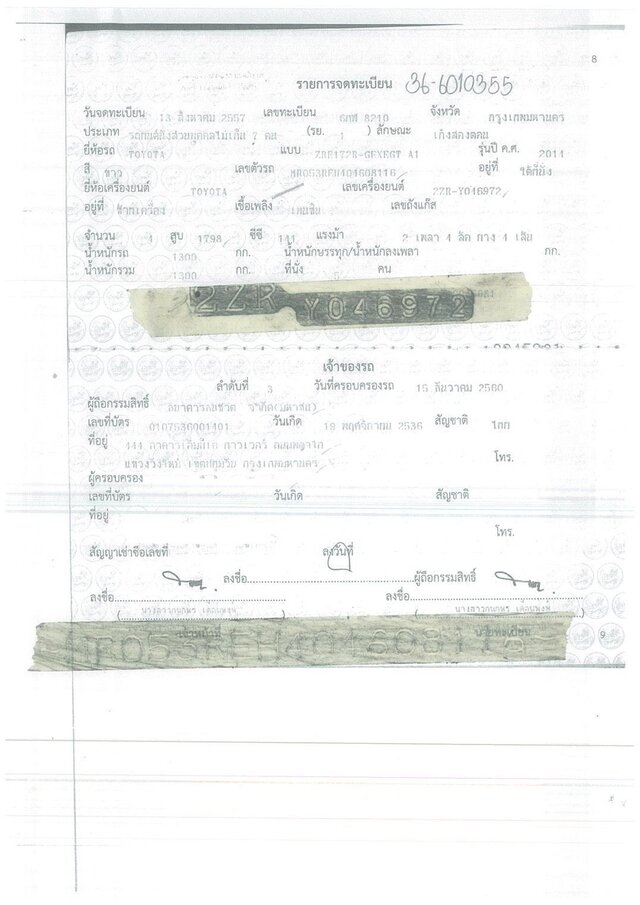 8
รายการจดทะเบียน 36-6010355
วันจดทะเบียน 13 สิงหาคม 2557 เลขทะเบียน 6กฬ 8210 จังหวัด กรุงเทพมหานคร
ประเภท รถยนต์นั่งส่วนบุคคลไม่เกิน 7 คน (รย. 1 ) ลักษณะ เก๋งสองตอน
ยี่ห้อรถ TOYOTA แบบ ZRE172R-GEXEGT A1 รุ่นปี ค.ศ. 2014
สี ขาว เลขตัวรถ MR053REH404608116 อยู่ที่ ใต้ที่นั่ง
ยี่ห้อเครื่องยนต์ TOYOTA เลขเครื่องยนต์ 2ZR-Y046972
อยู่ที่ ข้างเครื่อง เชื้อเพลิง เบนซิน เลขถังแก๊ส
จำนวน 4 สูบ 1798 ซีซี 141 แรงม้า 2 เพลา 4 ล้อ ยาง 4 เส้น
น้ำหนักรถ 1300 กก. น้ำหนักบรรทุก/น้ำหนักลงเพลา กก.
น้ำหนักรวม 1300 กก. ที่นั่ง คน
2ZR Y046972
เจ้าของรถ
ลำดับที่ 3 วันที่ครอบครองรถ 15 ธันวาคม 2560
ผู้ถือกรรมสิทธิ์ ธนาคารธนชาต จำกัด(มหาชน)
เลขที่บัตร 0107536001401 วันเกิด 19 พฤศจิกายน 2536 สัญชาติ ไทย
ที่อยู่ 444 อาคารเอ็มบีเค ทาวเวอร์ ถนนพญาไท
แขวงวังใหม่ เขตปทุมวัน กรุงเทพมหานคร โทร.
ผู้ครอบครอง
เลขที่บัตร วันเกิด สัญชาติ
ที่อยู่
โทร.
สัญญาเช่าซื้อเลขที่ ลงวันที่
ลงชื่อ ผู้ถือกรรมสิทธิ์
ลงชื่อ ลงชื่อ
เจ้าหน้าที่ นายทะเบียน
9